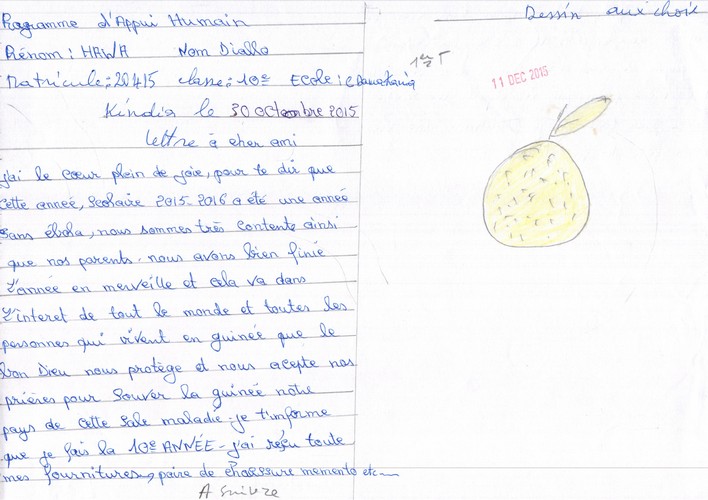 Programme d'Appui Humain
Prénom : HAWA Nom Diallo
Matricule : 20415 classe : 10e Ecole :
Kindia le 30 octombre 2015
lettre à cher ami
j'ai le cœur plein de joie, pour te dir que
cette année, scolaire 2015-2016 a été une année
sans ébola, nous sommes très contente ainsi
que nos parents. nous avons bien finie
l'année en merveille et cela va dans
l'interet de tout le monde et toutes les
personnes qui vivent en guinée que le
bon Dieu nous protège et nous acepte nos
prières pour souver la guinée nôtre
pays de cette sale maladie. je t'informe
que je fais la 10e ANNÉE - j'ai reçu toute
mes fournitures, paire de chaessure memento etc
A suivre
Dessin aux choix
1er T
11 DEC 2015